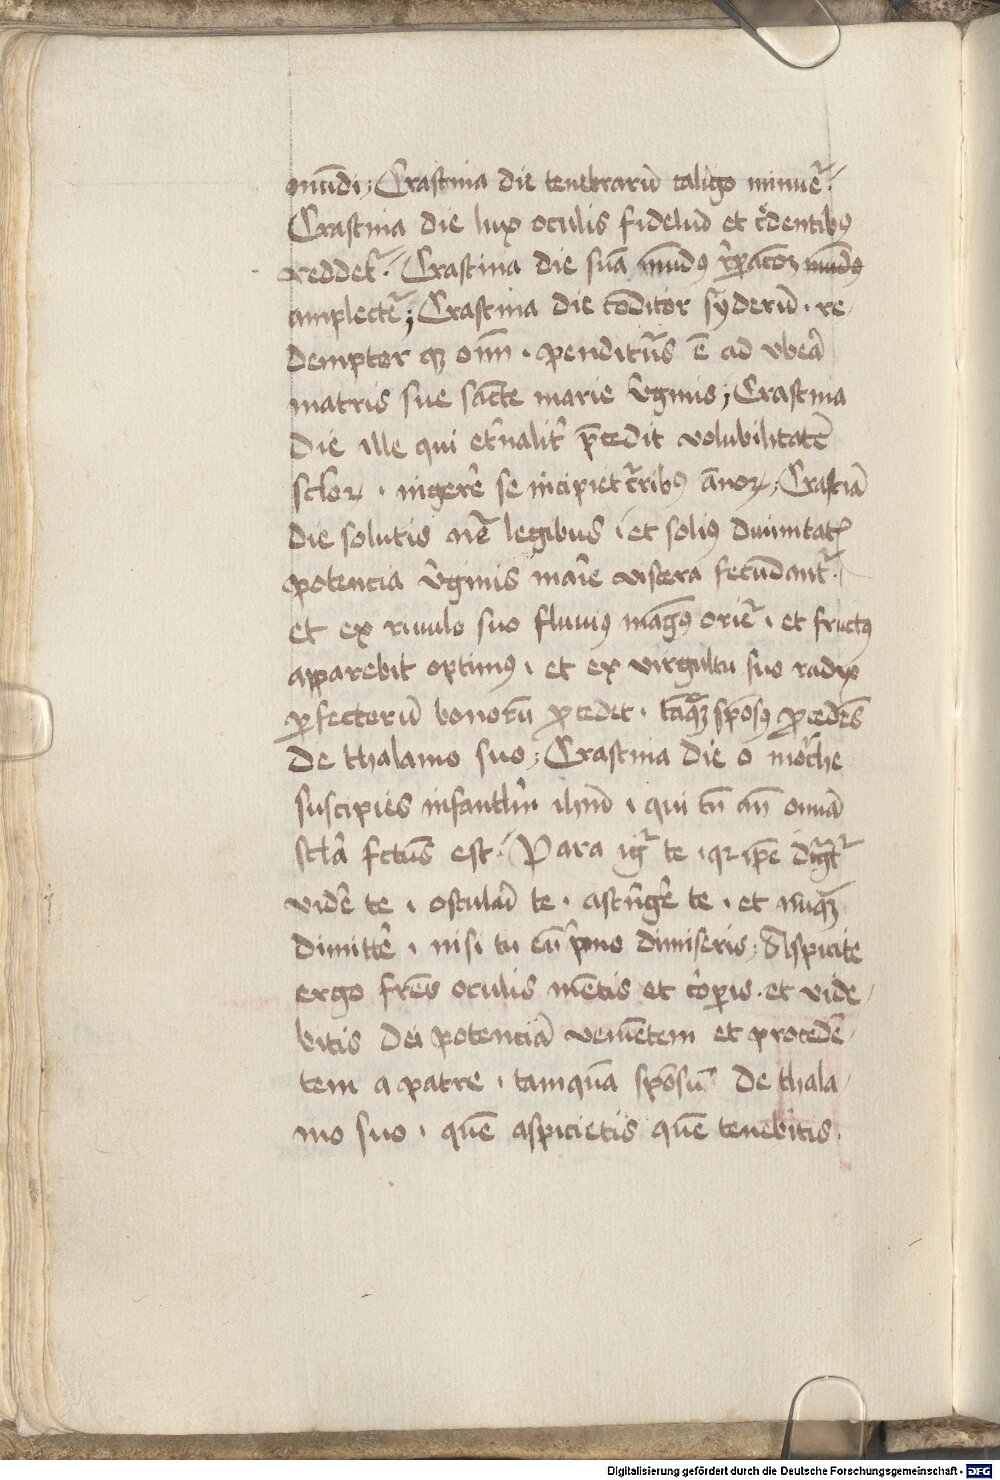 mūdi; Crastina die tenebrarū caligo minuet᷑.
Crastina die lux oculis fideliū et c̊dentibꝯ
reddet᷑. Crastina die suā mūdꝯ r̄ꝑac̄oꝫ mūdꝯ
amplectet᷑; Crastina die cōditor syderū · re
demptor qꝫ om̄ · penditur᷑s ē ad vbera᷑
matris sue sācte marie v̄ginis; Crastina
die ille qui et᷑nalit᷑ p̄cedit volubilitatē
sclōꝝ · ingere᷑ se incipiet c᷑ribꝯ annoꝝ; Crastīa
die solutis nat᷑e legibus · et soliꝯ diuinitatꝭ
potencia v̄ginis mar̄ie viscera fecūdant᷑.
et ex riuulo suo fluuiꝯ magnꝯ oriet᷑ · et fructꝯ
apparebit optimꝯ · et ex virgultu suo radix
ꝑfectorū bonorū ꝓcedet · tāqꝫ spōsꝯ ꝓcedēs
de thalamo suo; Crastina die o mōche
suscipies infantl̄m ihm̄ · qui tn̄ an̄ omīa
sclā fctūs est. Para igr᷑ te · qꝛ ip̄e dign̄t᷑
vide᷑ te · oscula᷑i te · ast᷑nge᷑ te · et nūqꝫ
dimitte᷑ · nisi tu eū p᷑mo dimiseris; Aspicite
ergo frēs oculis mētis et corꝑis · et vide
bitis dei potenciā venietem et procedē
tem a patre · tamquā spōsū de thala
mo suo · quē aspicietis quē tenebitis ·
Digitalisierung gefördert durch die Deutsche Forschungsgemeinschaft - DFG